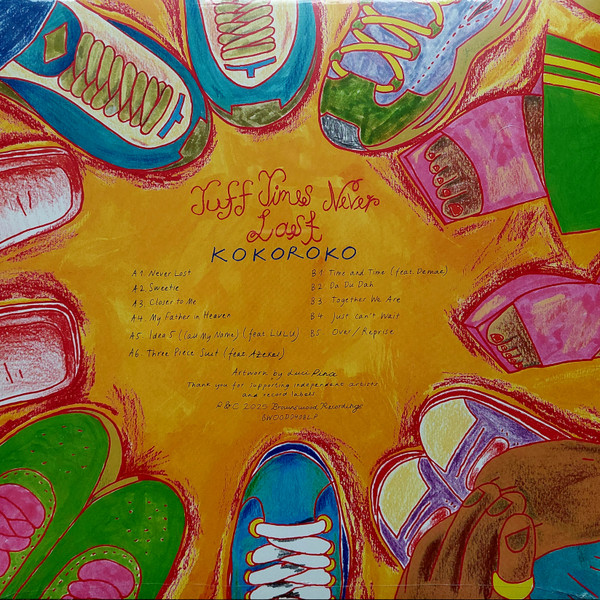 Tuff Times Never
Last
KOKOROKO
A1. Never Lost
A2. Sweetie
A3. Closer to Me
A4. My Father in Heaven
A5. Idea 5 (Call My Name) (feat. LULU)
A6. Three Piece Suit (feat. Azekel)
B.1 Time and Time (feat. Demae)
B.2 Da Du Dah
B.3 Together We Are
B.4 Just Can't Wait
B5. Over / Reprise
Artwork by Luci Pina
Thank you for supporting independent artists
and record labels
P & C 2025 Brownswood Recordings